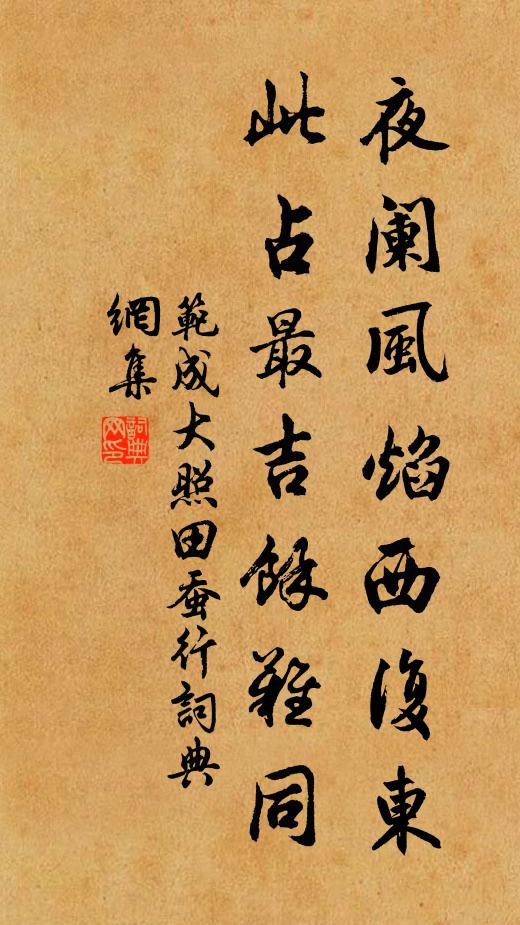 夜阑風焰西復東
此占最吉餘難同
範成大照田蚕行詞典
網集
詞典
网印